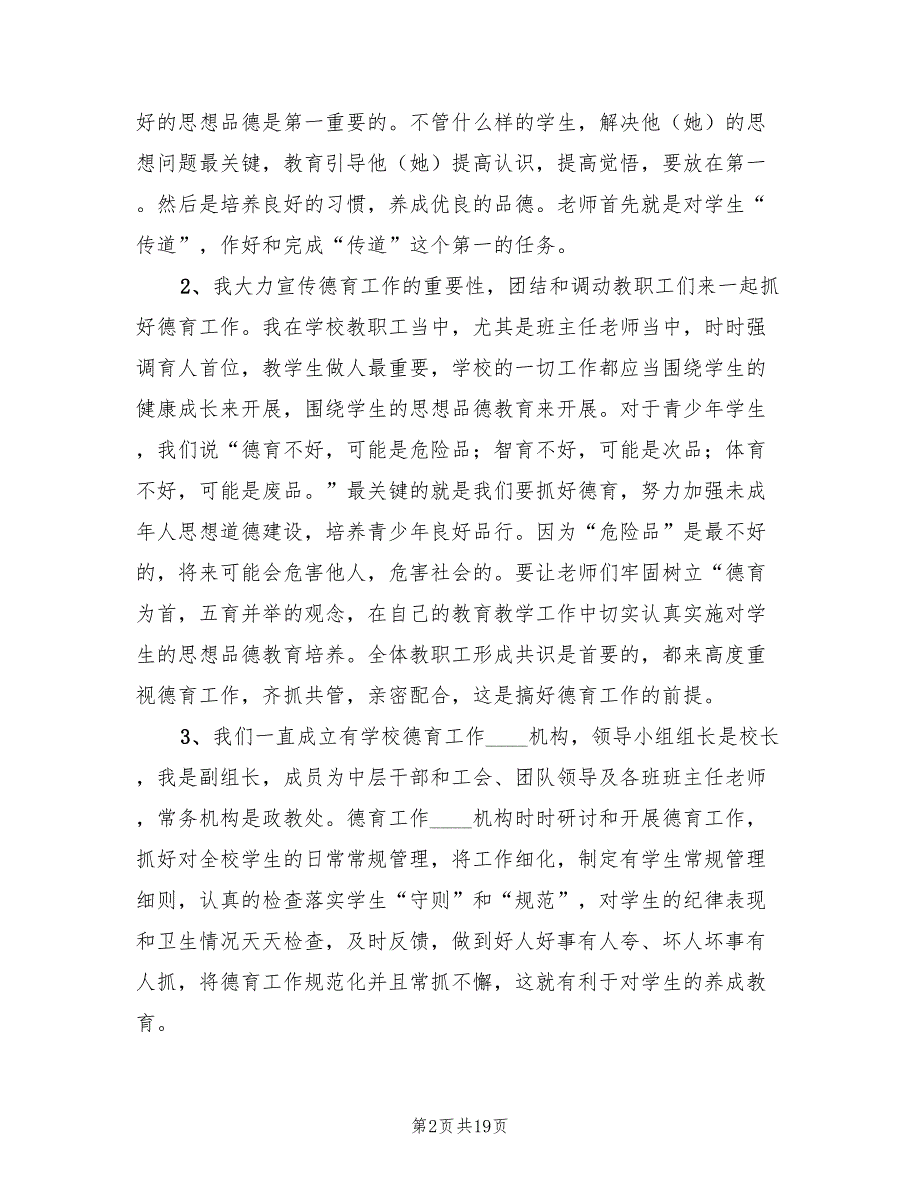 好的思想品德是第一重要的。不管什么样的学生，解决他（她）的思
想问题最关键，教育引导他（她）提高认识，提高觉悟，要放在第一
。然后是培养良好的习惯，养成优良的品德。老师首先就是对学生“
传道”，作好和完成“传道”这个第一的任务。
2、我大力宣传德育工作的重要性，团结和调动教职工们来一起抓
好德育工作。我在学校教职工当中，尤其是班主任老师当中，时时强
调育人首位，教学生做人最重要，学校的一切工作都应当围绕学生的
健康成长来开展，围绕学生的思想品德教育来开展。对于青少年学生
，我们说“德育不好，可能是危险品；智育不好，可能是次品；体育
不好，可能是废品。”最关键的就是我们要抓好德育，努力加强未成
年人思想道德建设，培养青少年良好品行。因为“危险品”是最不好
的，将来可能会危害他人，危害社会的。要让老师们牢固树立“德育
为首，五育并举的观念，在自己的教育教学工作中切实认真实施对学
生的思想品德教育培养。全体教职工形成共识是首要的，都来高度重
视德育工作，齐抓共管，亲密配合，这是搞好德育工作的前提。
3、我们一直成立有学校德育工作____机构，领导小组组长是校长
，我是副组长，成员为中层干部和工会、团队领导及各班班主任老师
，常务机构是政教处。德育工作____机构时时研讨和开展德育工作，
抓好对全校学生的日常常规管理，将工作细化，制定有学生常规管理
细则，认真的检查落实学生“守则”和“规范”，对学生的纪律表现
和卫生情况天天检查，及时反馈，做到好人好事有人夸、坏人坏事有
人抓，将德育工作规范化并且常抓不懈，这就有利于对学生的养成教
育。
第2页共19页